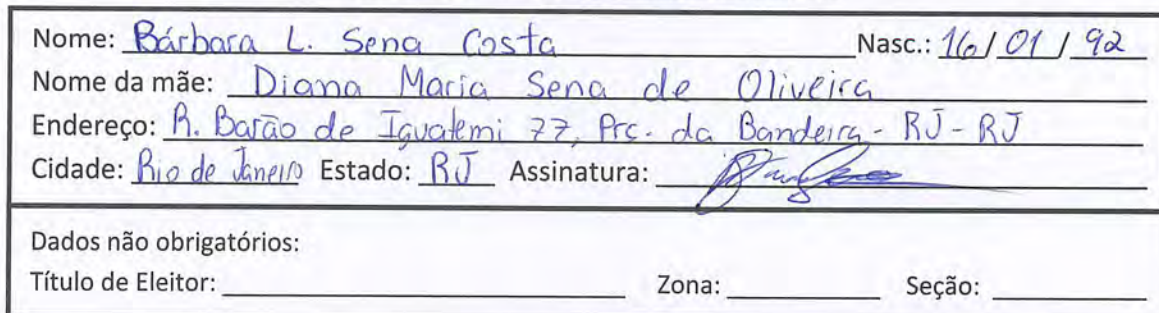 Nome: Bárbara L. Sena Costa Nasc.: 16/01/92
Nome da mãe: Diana Maria Sena de Oliveira
Endereço: R. Barão de Iguatemi 77, Prç. da Bandeira - RJ - RJ
Cidade: Rio de Janeiro Estado: RJ Assinatura:
Dados não obrigatórios:
Título de Eleitor: Zona: Seção: